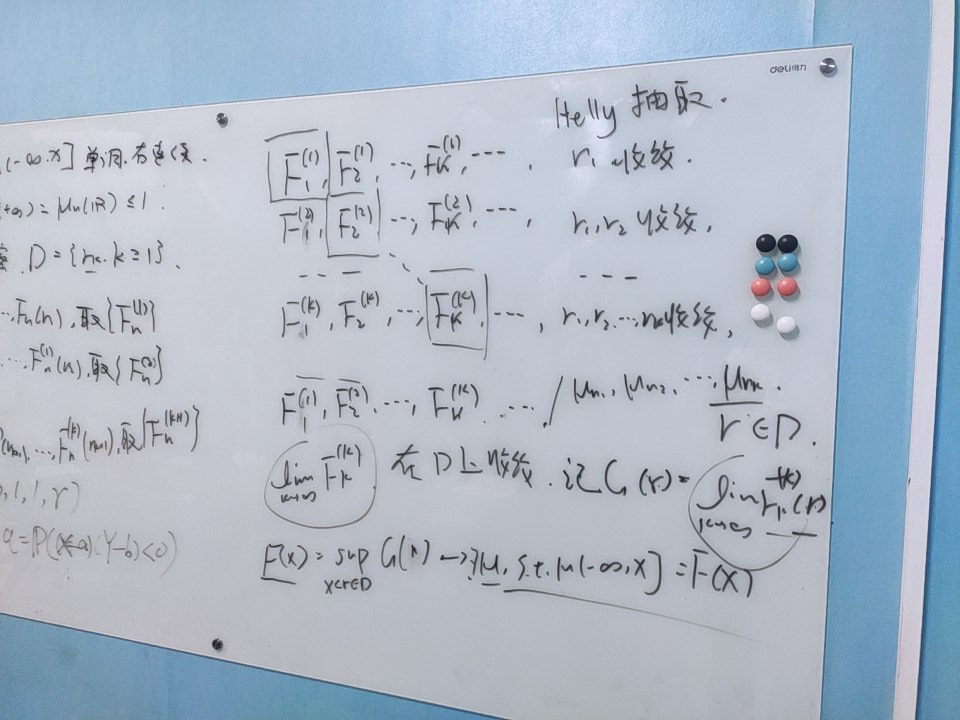 deli得力
Helly 抽取.
(-∞,x] 单调.右连续.
+∞) = μn(ℝ) ≤ 1
D = {rk. k ≥ 1}.
取{Fn^(1)}
…Fn^(1)(n), 取{Fn^(2)}
…, Fn^(k)(rk+1), 取{Fn^(k+1)}
, 1, 1, r)
a = P((X-a)·(Y-b)<0)
F1^(1), F2^(1) …, Fk^(1), … , r1 收敛.
F1^(2), F2^(2) …, Fk^(2), … , r1, r2 收敛,
--- ---
F1^(k), F2^(k), …, Fk^(k), … , r1, r2, …, rk收敛,
F1^(1), F2^(2), …, Fk^(k) … / μn1, μn2, …, μnk.
r ∈ D.
lim k→∞ Fk^(k) 在 D上收敛. 记 G(r) = lim k→∞ Fk^(k)(r)
F(x) = sup x<r∈D G(r) → ∃μ, s.t. μ(-∞,x] = F(x)